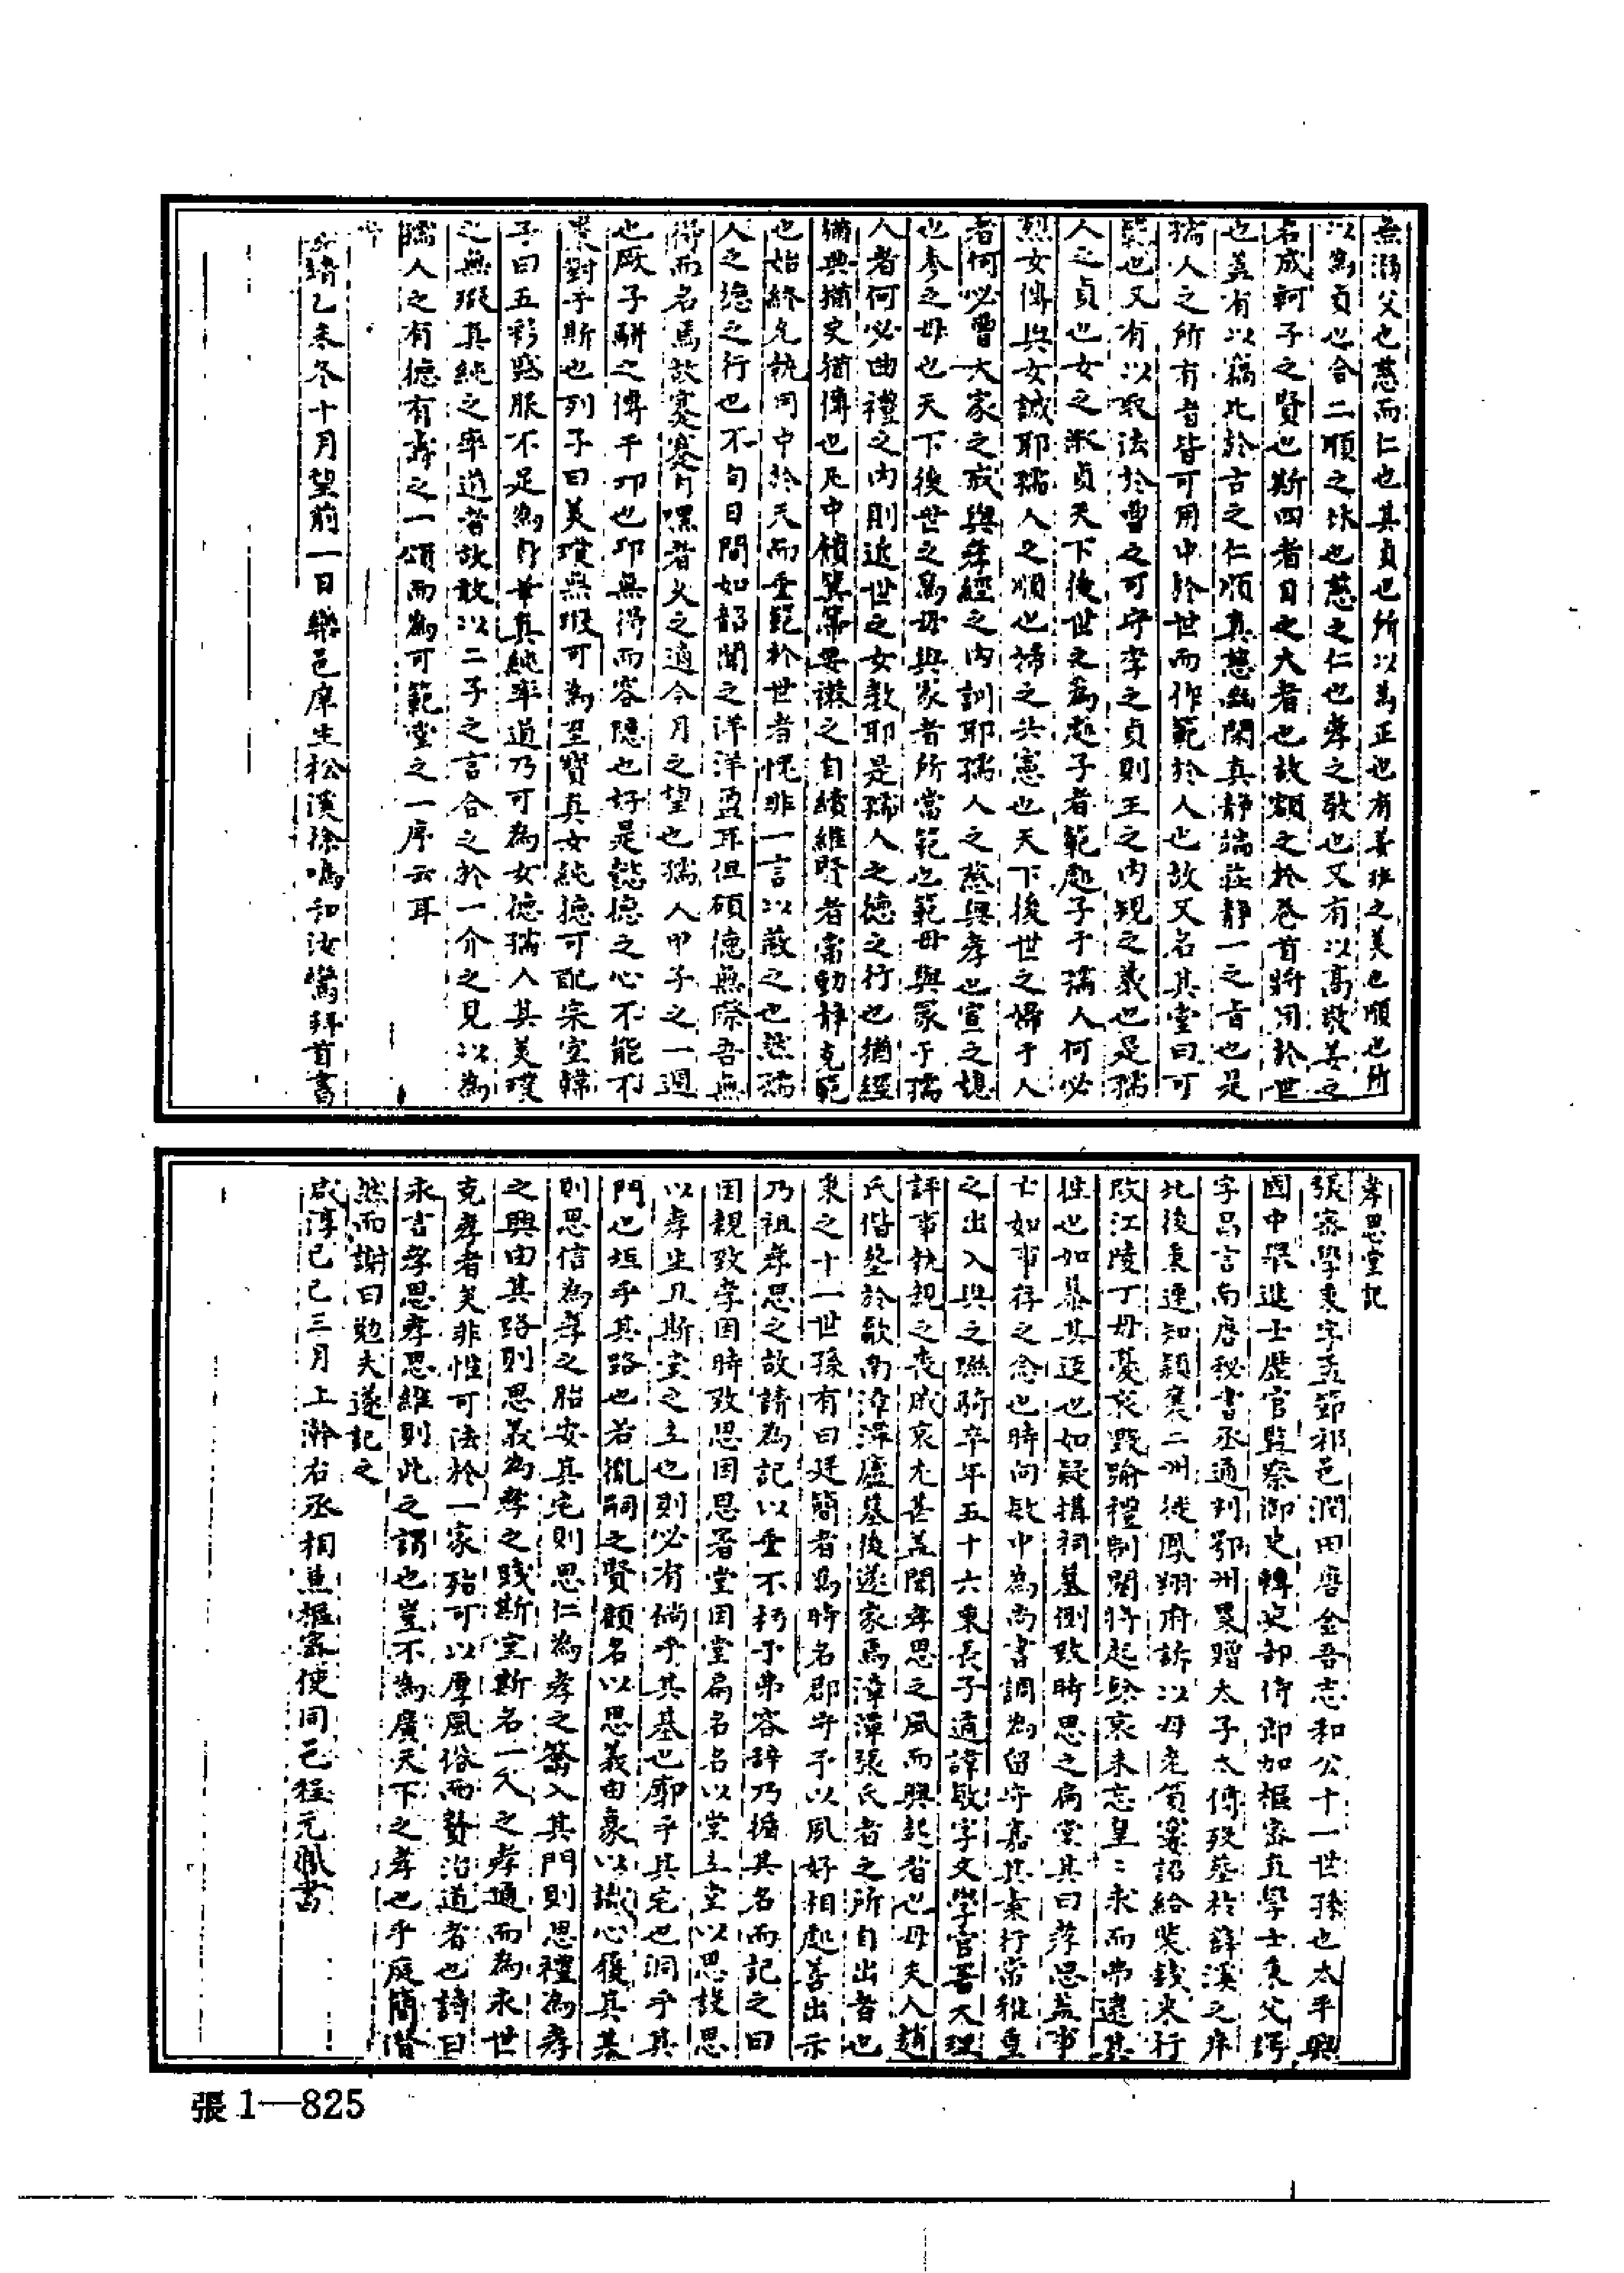 無溺父也慈而仁也其貞也所以為正也有姜班之美也順也所
以為貞也合二順之以也慈之仁也孝之敬也又有以高敬姜之
名成軻子之賢也斯四者目之大者也故額之於卷首將同於世
也蓋有以竊比於古之仁順真慈幽閑真靜端莊靜一之旨也是
孺人之所有者皆可用中於世而作範於人也故又名其堂曰可
範也又有以取法於曹之可守孝之貞則王之內規之義也是孺
人之貞也女之淑貞天下後世之為處子者範處子于孺人何必
烈女傳與女誡耶孺人之順也婦之共憲也天下後世之婦于人
者何必曹大家之成與孝經之內訓耶孺人之慈與孝也宣之媲
也參之母也天下後世之為母與家者所當範也範母與家于孺
人者何必曲禮之內則近世之女教耶是孺人之德之行也猶經
猶典猶史猶傳也凡中槓箕帚晏漱之自績維賢者當動靜克範
也始終允執同中於天而垂範於世者愧非一言以蔽之也然孺
人之德之行也不旬日間如韶聞之洋洋盈耳但碩德無際吾無
得而名焉故寔寔可嘿者久之適今月之望也孺人甲子之一週
也厥子駢之傳于邛也邛無得而容隱也好是懿德之心不能不
果對乎斯也列子曰美璞無瑕可為至寶真女純德可配宗室韓
子曰五彩盛服不足為身華真純率道乃可為女德孺人其美璞
之無瑕真純之率道者故敢以二子之言合之於一介之見以為
孺人之有德有壽之一頌而為可範堂之一序云耳
時
嘉靖乙未冬十月望前一日樂邑庠生松溪徐鳴和汝鸞拜首書
孝思堂記
張密學秉字孟節祁邑潤田唐金吾志和公十一世孫也太平興
國中舉進士歷官監察御史轉吏部侍郎加樞密直學士秉父諤
字昌言南唐秘書丞通判鄂州累贈太子太傅歿墓於薛溪之庠
北後秉連知潁襄二州徙鳳翔府訴以母老貧窶詔給裝錢未行
改江陵丁母憂哀毀踰禮制闋將起發哀未忘皇二求而弗逮其
性也如慕其迋也如疑搆祠墓側致時思之扁堂其曰孝思蓋事
亡如事存之念也時向敏中為尚書調為留守嘉其秉行常雅重
之出入與之聯騎卒年五十六秉長子適諱敏字文學官晉大理
評事執親之喪戚哀尤甚蓋聞孝思之風而興起者也母夫人趙
氏偕塟於歙南漳潭廬墓後遂家焉漳潭張氏者之所自出者也
秉之十一世孫有曰廷簡者為時名郡守予以夙好相處善出示
乃祖孝思之故請為記以垂不朽予弗容辞乃揗其名而記之曰
因親致孝因時致思因思署堂因堂扁名名以堂立堂以思設思
以孝生且斯堂之立也則必有倘乎其基也廓乎其宅也洞乎其
門也坦乎其路也若胤嗣之賢顧名以思義由象以識心履其基
則思信為孝之胎安其宅則思仁為孝之籌入其門則思禮為孝
之興由其路則思義為孝之踐斯室斯名一人之孝通而為永世
克孝者矣非惟可法於一家殆可以厚風俗而賛治道者也詩曰
永言孝思孝思維則此之謂也豈不為廣天下之孝也乎庭簡潛
然而謝曰勉夫遂記之
咸淳己巳三月上澣右丞相兼樞密使同邑程元鳳書
張1—825